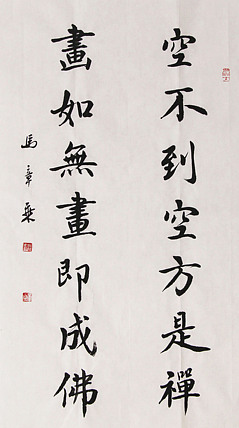 空不到空方是禪
畫如無畫即成佛
馬章乘